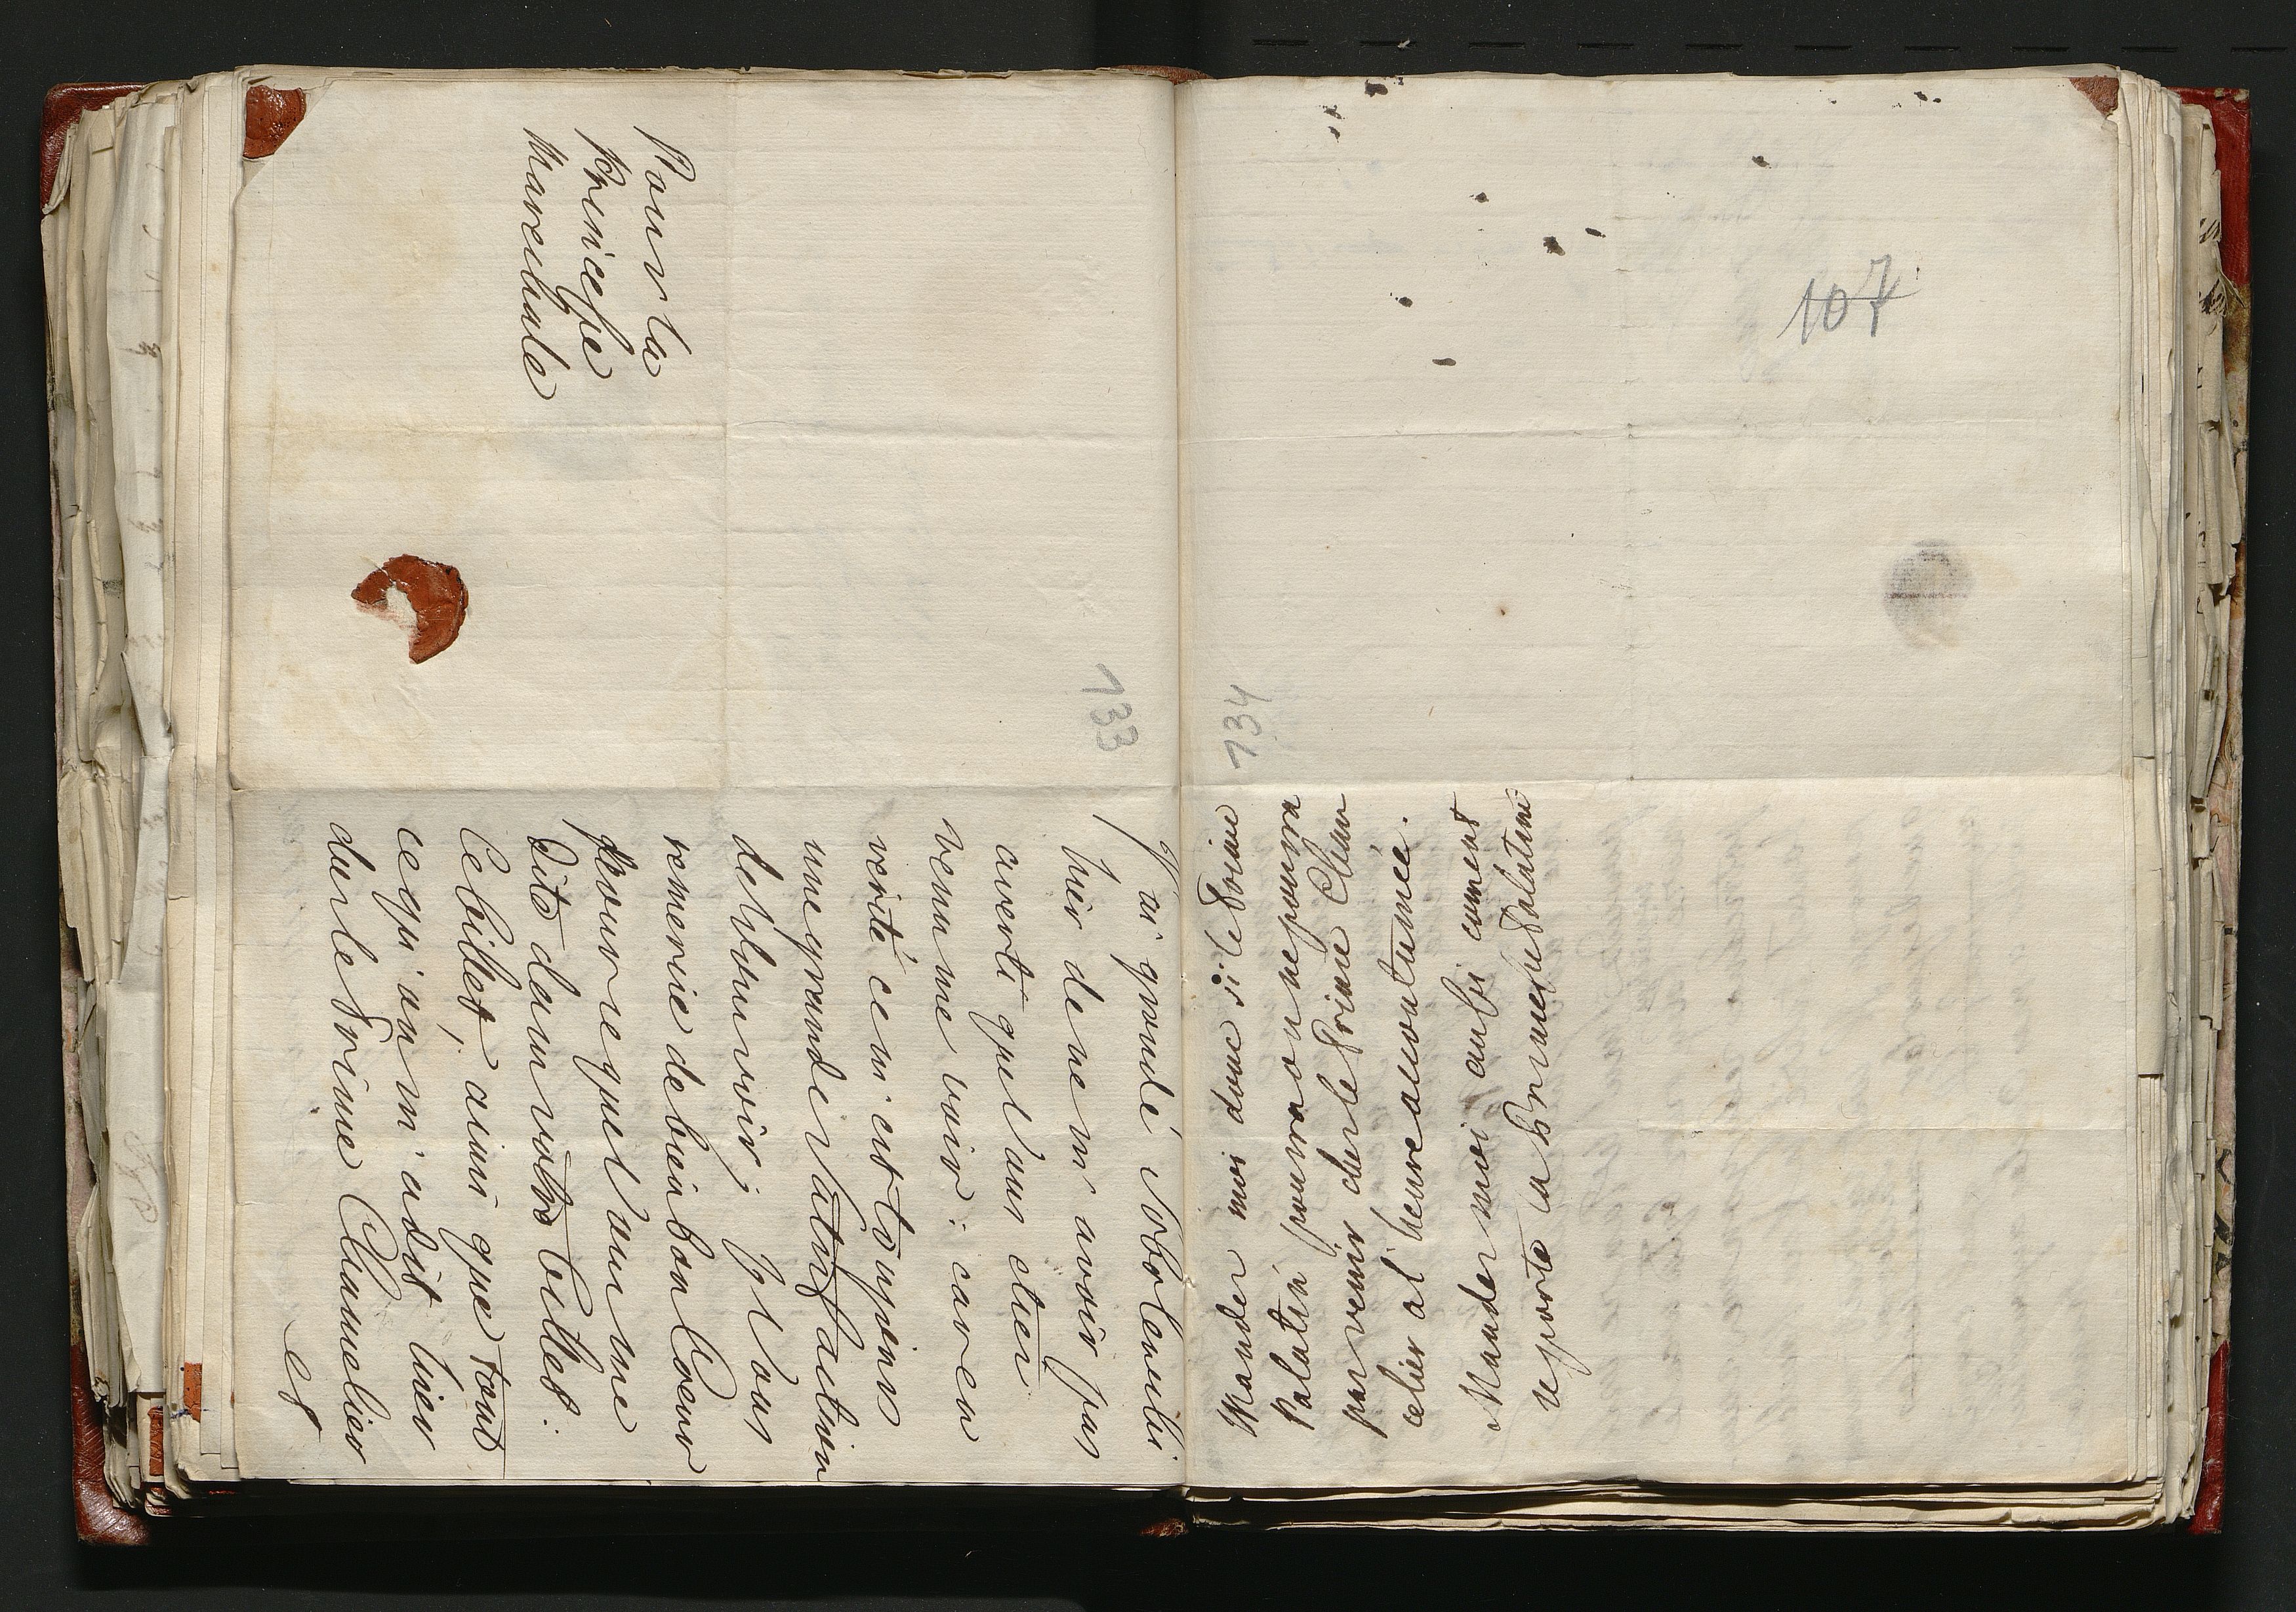 Pour la
Princesse
Marechale
133
J'ai grondé Sobolenski
hier de ne m'avoir pas
averti que vous etiez
venu me voir: car en
verité c'en est toujours
une grande satisfaction
de vous voir; Je vous
remercie de bien bon Coeur
pour ce que vous me
dite dans votre billet.
Ce billet, ainsi que tout
ce qu'on m'a dit hier
chez le Prince Chancelier
est
107
134
Mander moi donc si le Prince
Palatin pourra ou ne pourra
pas venir chez le Prince Chan
celier a l'heure accoutumée.
Mander moi aussi comment
se porte la Princesse Palatine